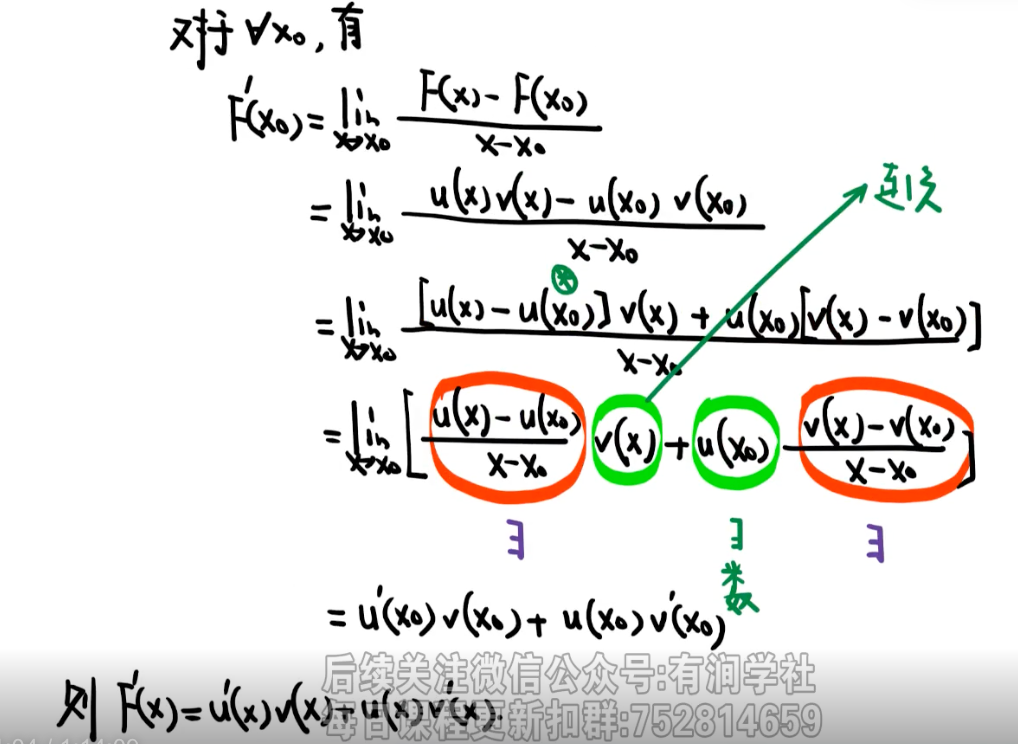 对于∀x₀,有
F'(x₀)=lim x→x₀ (F(x)-F(x₀))/(x-x₀)
=lim x→x₀ (u(x)v(x)-u(x₀)v(x₀))/(x-x₀)
连续
⊛
=lim x→x₀ ([u(x)-u(x₀)]v(x)+u(x₀)[v(x)-v(x₀)])/(x-x₀)
=lim x→x₀ [(u(x)-u(x₀))/(x-x₀) v(x)+u(x₀) (v(x)-v(x₀))/(x-x₀)]
∃ ∃ ∃
常数
=u'(x₀)v(x₀)+u(x₀)v'(x₀)
后续关注微信公众号:有润学社
则 F'(x)=u'(x)v(x)+u(x)v'(x).
每日课程更新扣群:752814659